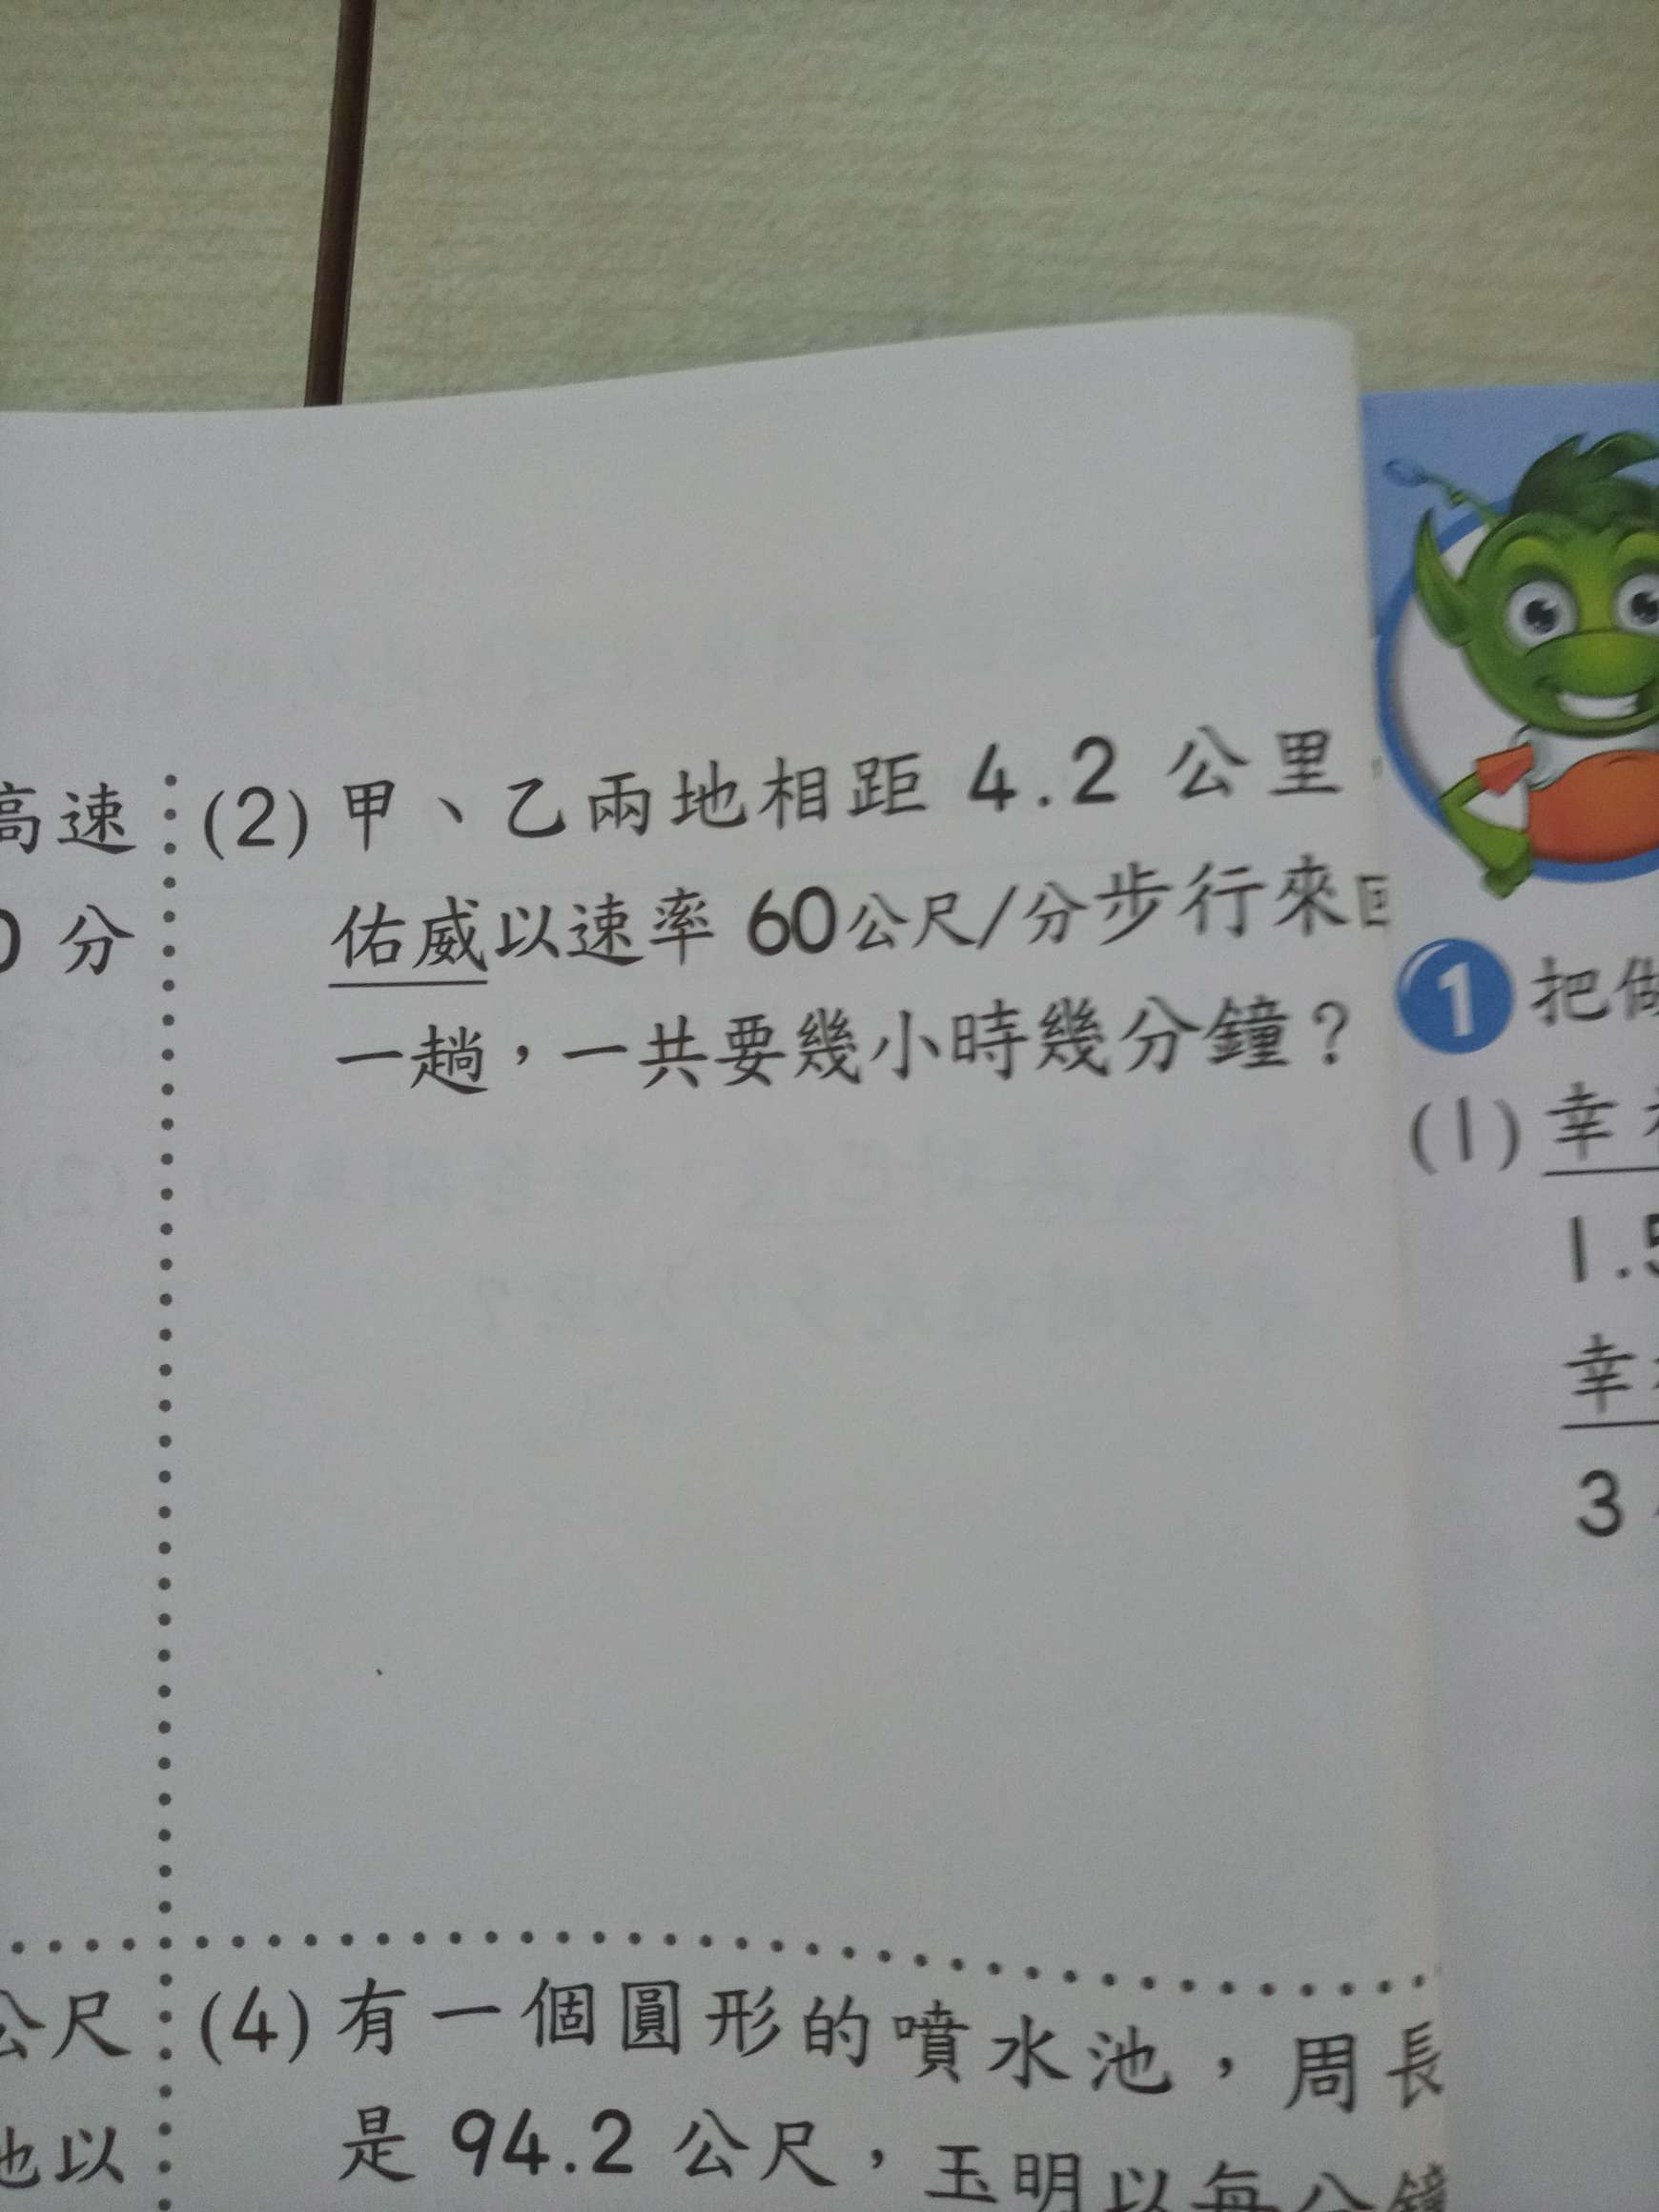 高速
0 分
(2) 甲、乙兩地相距 4.2 公里，
佑威以速率 60公尺/分步行來回
一趟，一共要幾小時幾分鐘？
公尺
地以
(4) 有一個圓形的噴水池，周長
是 94.2 公尺，玉明以每分鐘
1 把做
(1) 幸
1.5
幸
3